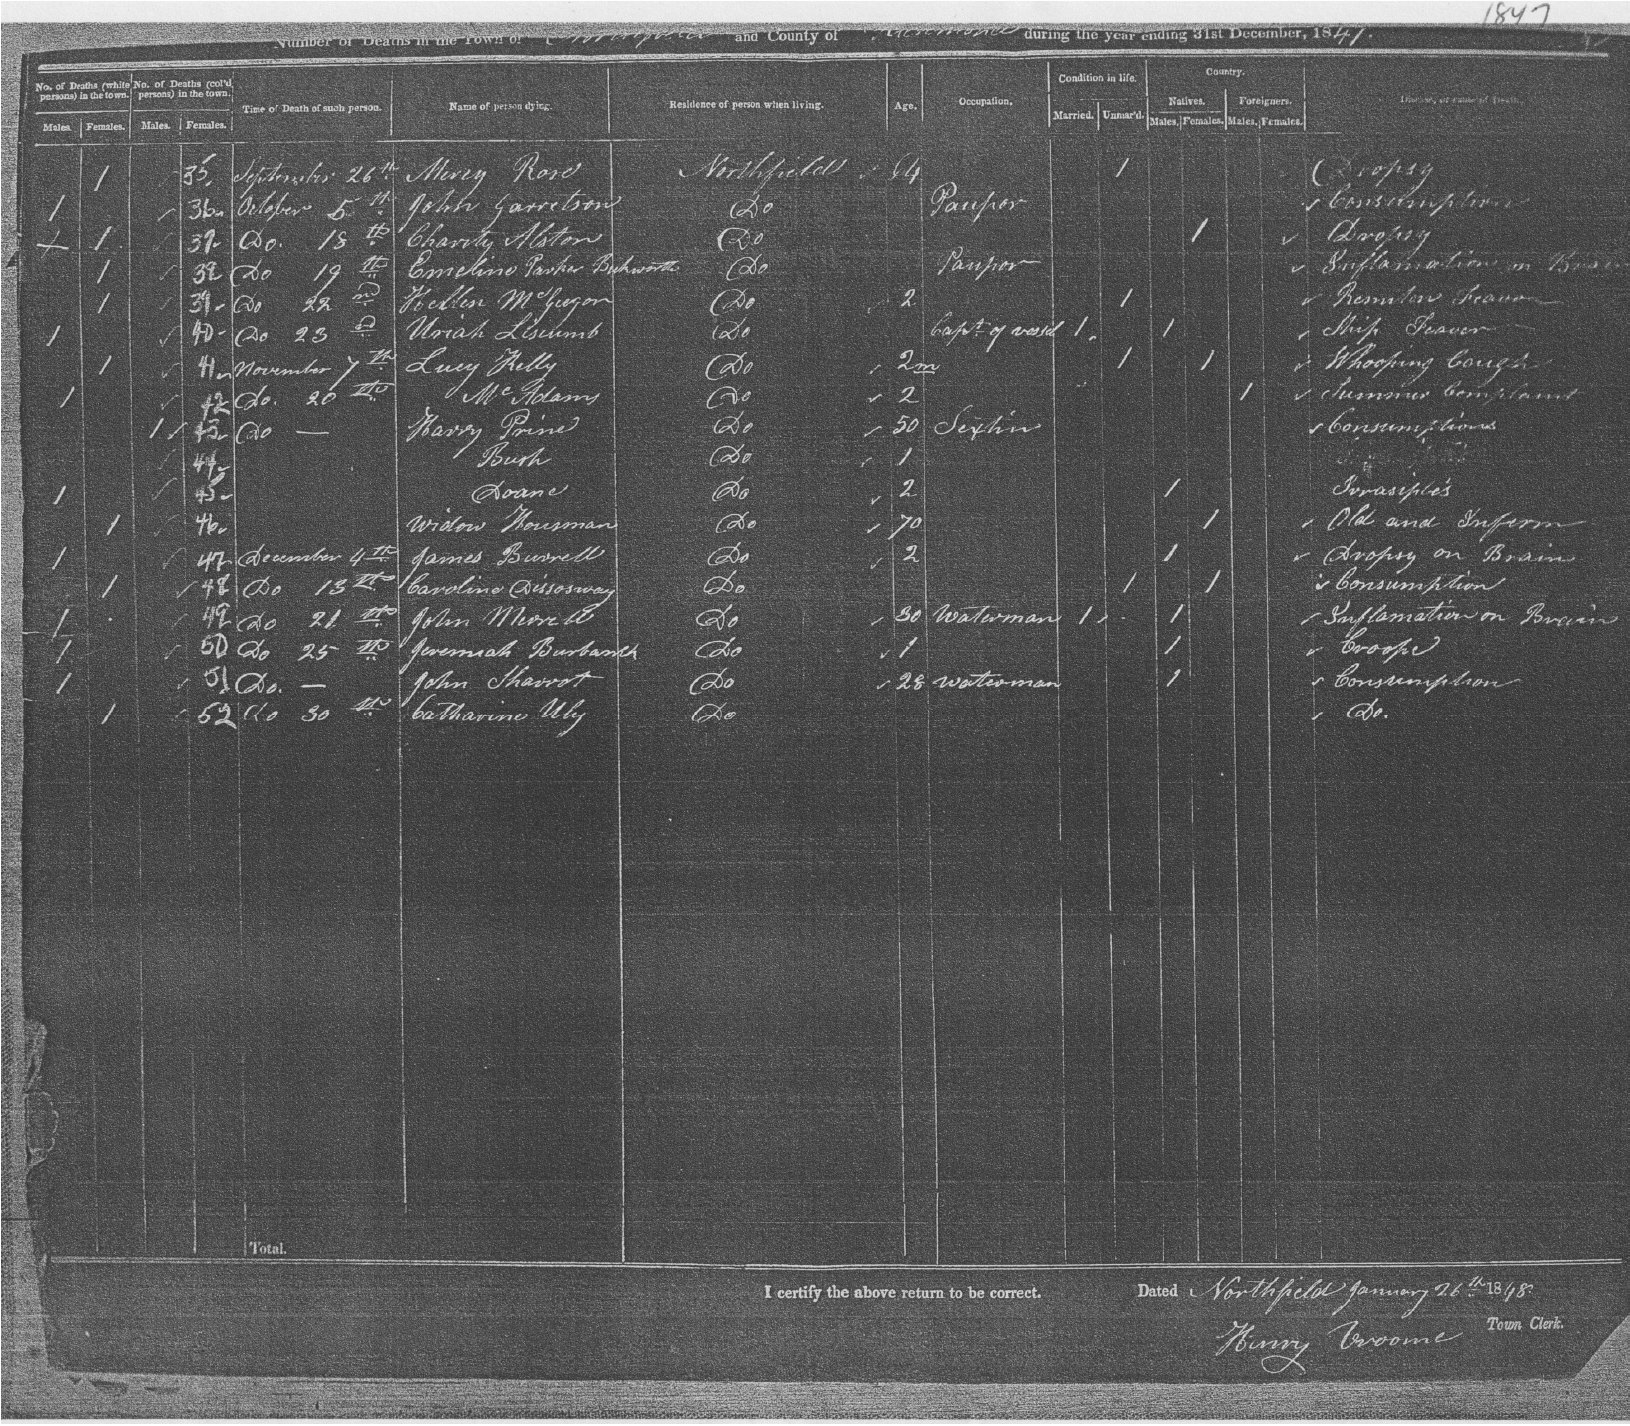 1847
Number of Deaths in the Town of Northfield and County of Richmond during the year ending 31st December, 1847.
No. of Deaths (white persons) in the town. No. of Deaths (col'd persons) in the town. Time of Death of such person. Name of person dying. Residence of person when living. Age. Occupation. Condition in life. Country. Disease, or cause of Death.
Natives. Foreigners.
Males. Females. Males. Females. Married. Unmar'd. Males. Females. Males. Females.
1 35. September 26th Mercy Rose Northfield 64 1 Dropsy
1 36 October 5th John Garretson Do Pauper Consumption
1 37 Do. 18th Charity Alston Do 1 Dropsy
1 38 Do 19th Emeline Parker Do Paupor Inflamation on Brain
1 39 Do 22nd Hellen McGregor Do 2 1 Feaver
1 40 Do 23rd Uriah Liscumb Do Capt of vessel 1 1 Ship Feaver
1 41 November 7th Lucy Kelly Do 2m 1 1 Whooping Cough
1 42 Do. 20th McAdams Do 2 1 Summer Complaint
1 43 Do — Harry Prine Do 50 Sextin Consumption
44 Bush Do 1
1 45 Doane Do 2 1
1 46 Widow Housman Do 70 1 Old and Inferm
1 47 December 4th James Burrell Do 2 1 Dropsy on Brain
1 48 Do 13th Caroline Dissosway Do 1 1 Consumption
1 49 Do 21th John Merrell Do 30 Waterman 1 1 Inflamation on Brain
1 50 Do 25th Jeremiah Burbanck Do 1 1 Croope
1 51 Do. — John Sharrot Do 28 Waterman 1 Consumption
1 52 Do 30th Catharine Uly Do Do.
Total.
I certify the above return to be correct. Dated Northfield January 26th 1848.
Henry Vroome Town Clerk.